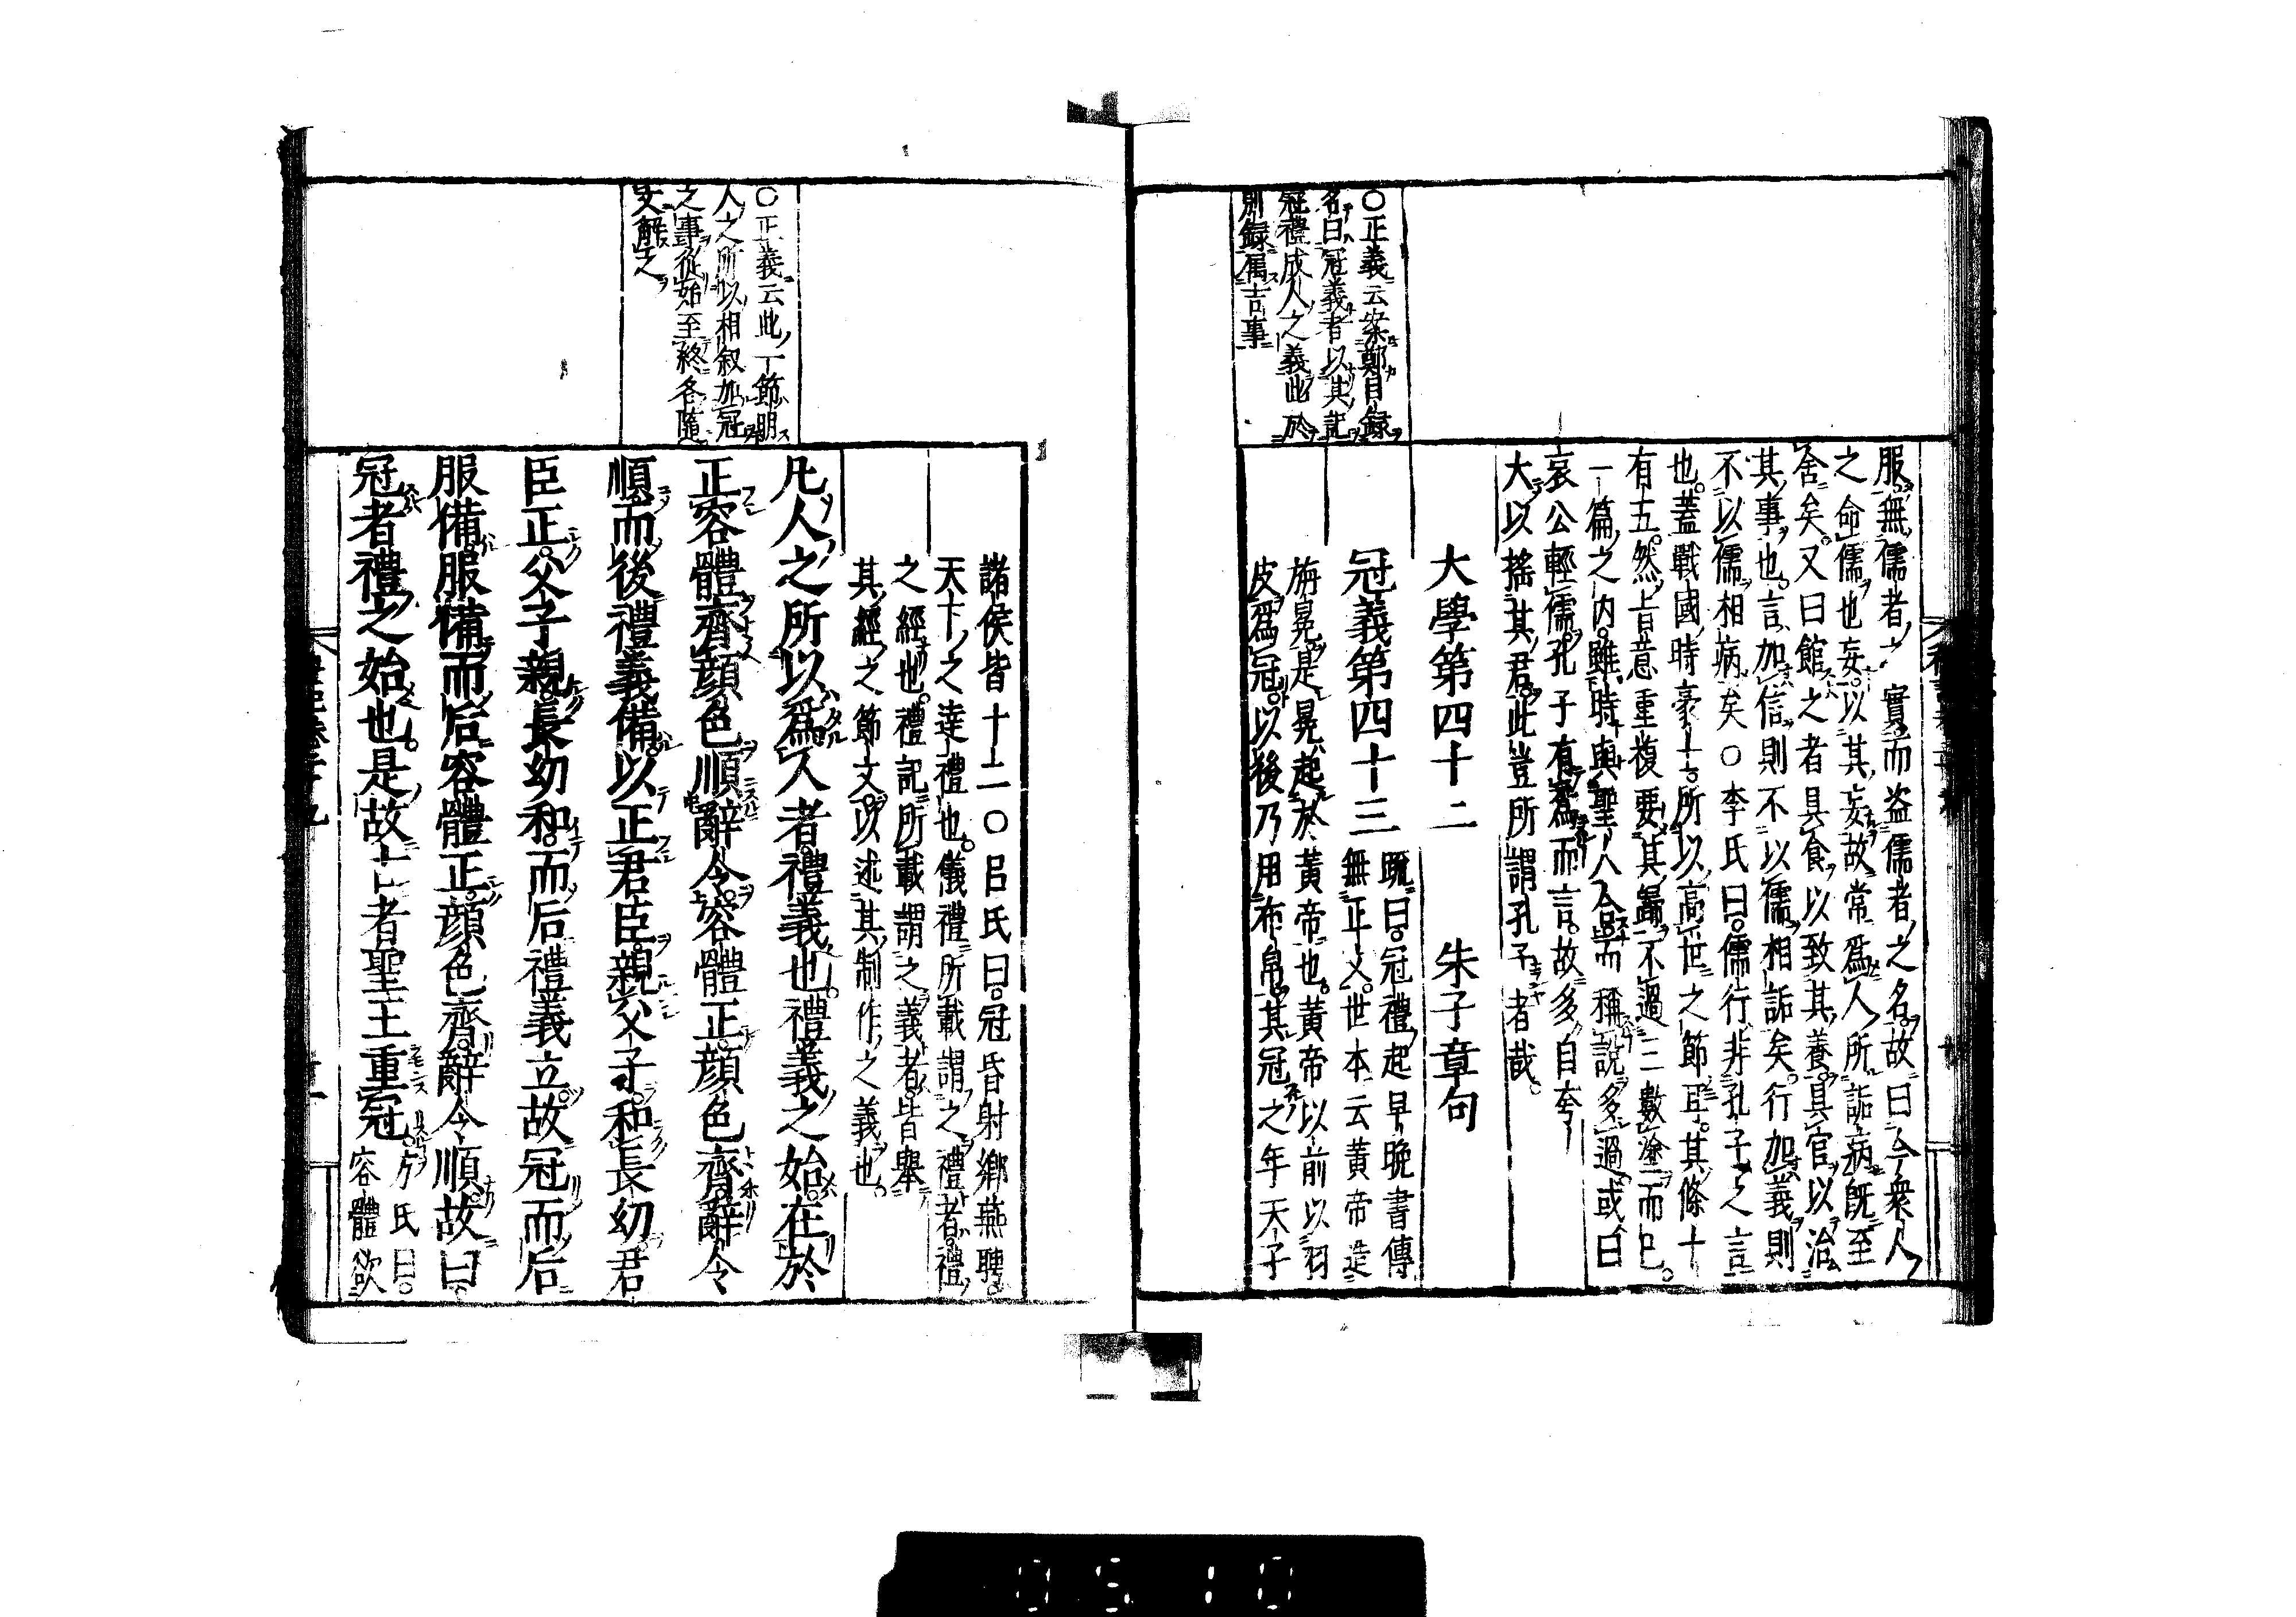 〇正義云案鄭目録
名曰冠義者以其記
冠禮成人之義此於
別録属吉事
服無儒者之實而盗儒者之名故曰今衆人
之命儒也妄以其妄故常爲人所詬病旣至
舍矣又曰館之者具食以致其養具官以治
其事也言加信則不以儒相詬矣行加義則
不以儒相病矣〇李氏曰儒行非孔子之言
也蓋戰國時豪士所以高世之節耳其條十
有五然旨意重複要其歸不過三數塗而已
一篇之内雖時與聖人合而稱說多過或曰
哀公輕儒孔子有爲而言故多自夸
大以搖其君此豈所謂孔子者哉
大學第四十二　朱子章句
冠義第四十三
䟽曰冠禮起早晚書傳
無正文世本云黄帝造
旃冕是冕起於黄帝也黄帝以前以羽
皮爲冠以後乃用布帛其冠之年天子
〇正義云此一節明
人之所以相叙加冠
之事從始至終各隨
文解之
諸侯皆十二〇呂氏曰冠昏射鄉燕聘
天下之達禮也儀禮所載謂之禮者禮
之經也禮記所載謂之義者皆舉
其經之節文以述其制作之義也
凡人之所以爲人者禮義也禮義之始在於
正容體齊顔色順辭令容體正顔色齊辭令
順而後禮義備以正君臣親父子和長幼君
臣正父子親長幼和而后禮義立故冠而后
服備服備而后容體正顔色齊辭令順故曰
冠者禮之始也是故古者聖王重冠
方氏曰
容體欲
0510